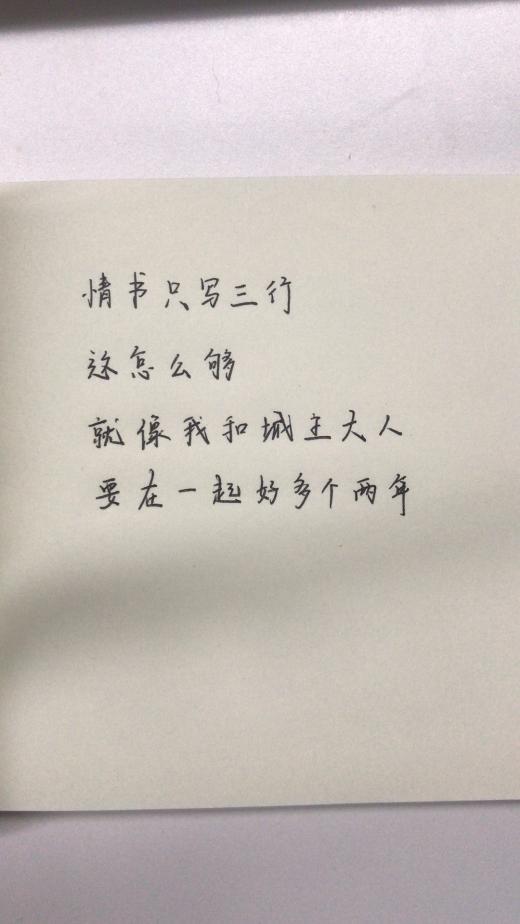 情书只写三行
这怎么够
就像我和城主大人
要在一起好多个两年